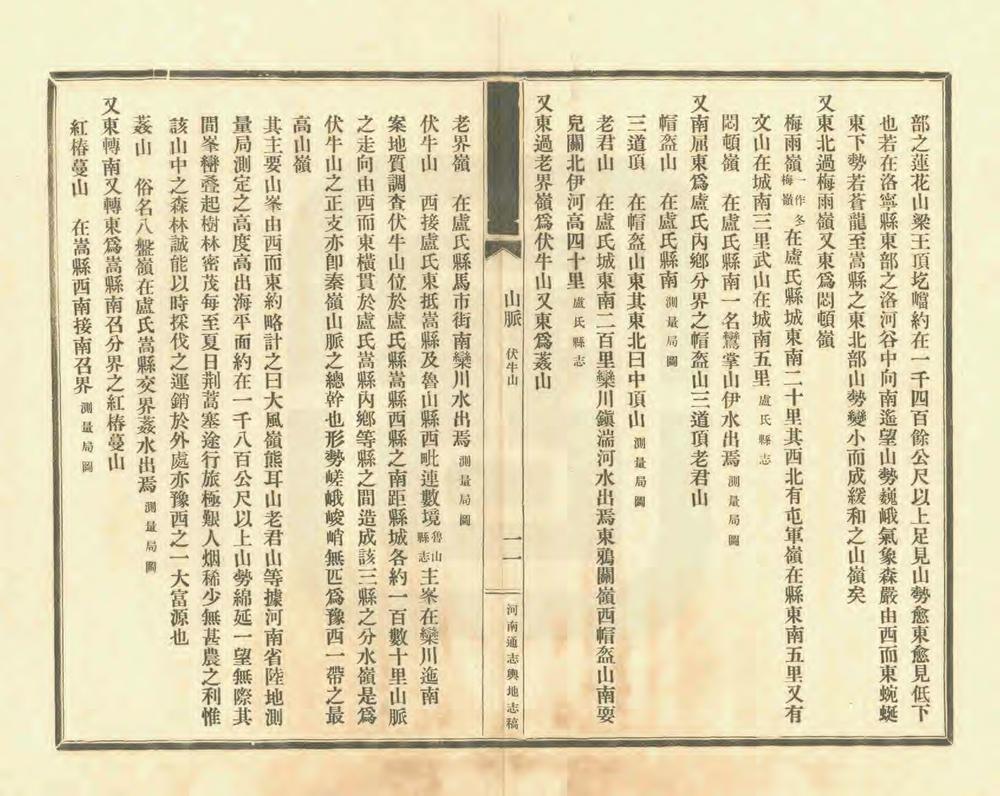 部之蓮花山梁王頂圪壋約在一千四百餘公尺以上足見山勢愈東愈見低下
也若在洛寧縣東部之洛河谷中向南遙望山勢巍峨氣象森嚴由西而東蜿蜒
東下勢若蒼龍至嵩縣之東北部山勢變小而成緩和之山嶺矣
又東北過梅雨嶺又東爲悶頓嶺
梅雨嶺一作冬梅嶺在盧氏縣城東南二十里其西北有屯軍嶺在縣東南五里又有
文山在城南三里武山在城南五里盧氏縣志
悶頓嶺 在盧氏縣南一名鸞掌山伊水出焉測量局圖
又南屈東爲盧氏內鄉分界之帽盔山三道頂老君山
帽盔山 在盧氏縣南測量局圖
三道頂 在帽盔山東其東北曰中頂山測量局圖
老君山 在盧氏城東南二百里欒川鎭湍河水出焉東鴉關嶺西帽盔山南耍
兒關北伊河高四十里盧氏縣志
又東過老界嶺爲伏牛山又東爲葌山
山脈 伏牛山 一一 河南通志輿地志稿
老界嶺 在盧氏縣馬市街南欒川水出焉測量局圖
伏牛山 西接盧氏東抵嵩縣及魯山縣西毗連數境魯山縣志主峯在欒川迤南
案地質調查伏牛山位於盧氏縣嵩縣西縣之南距縣城各約一百數十里山脈
之走向由西而東橫貫於盧氏嵩縣內鄉等縣之間造成該三縣之分水嶺是爲
伏牛山之正支亦卽秦嶺山脈之總幹也形勢嵯峨峻峭無匹爲豫西一帶之最
高山嶺
其主要山峯由西而東約略計之曰大風嶺熊耳山老君山等據河南省陸地測
量局測定之高度高出海平面約在一千八百公尺以上山勢綿延一望無際其
間峯巒叠起樹林密茂每至夏日荆蒿塞途行旅極艱人烟稀少無甚農之利惟
該山中之森林誠能以時採伐之運銷於外處亦豫西之一大富源也
葌山 俗名八盤嶺在盧氏嵩縣交界葌水出焉測量局圖
又東轉南又轉東爲嵩縣南召分界之紅椿蔓山
紅椿蔓山 在嵩縣西南接南召界測量局圖